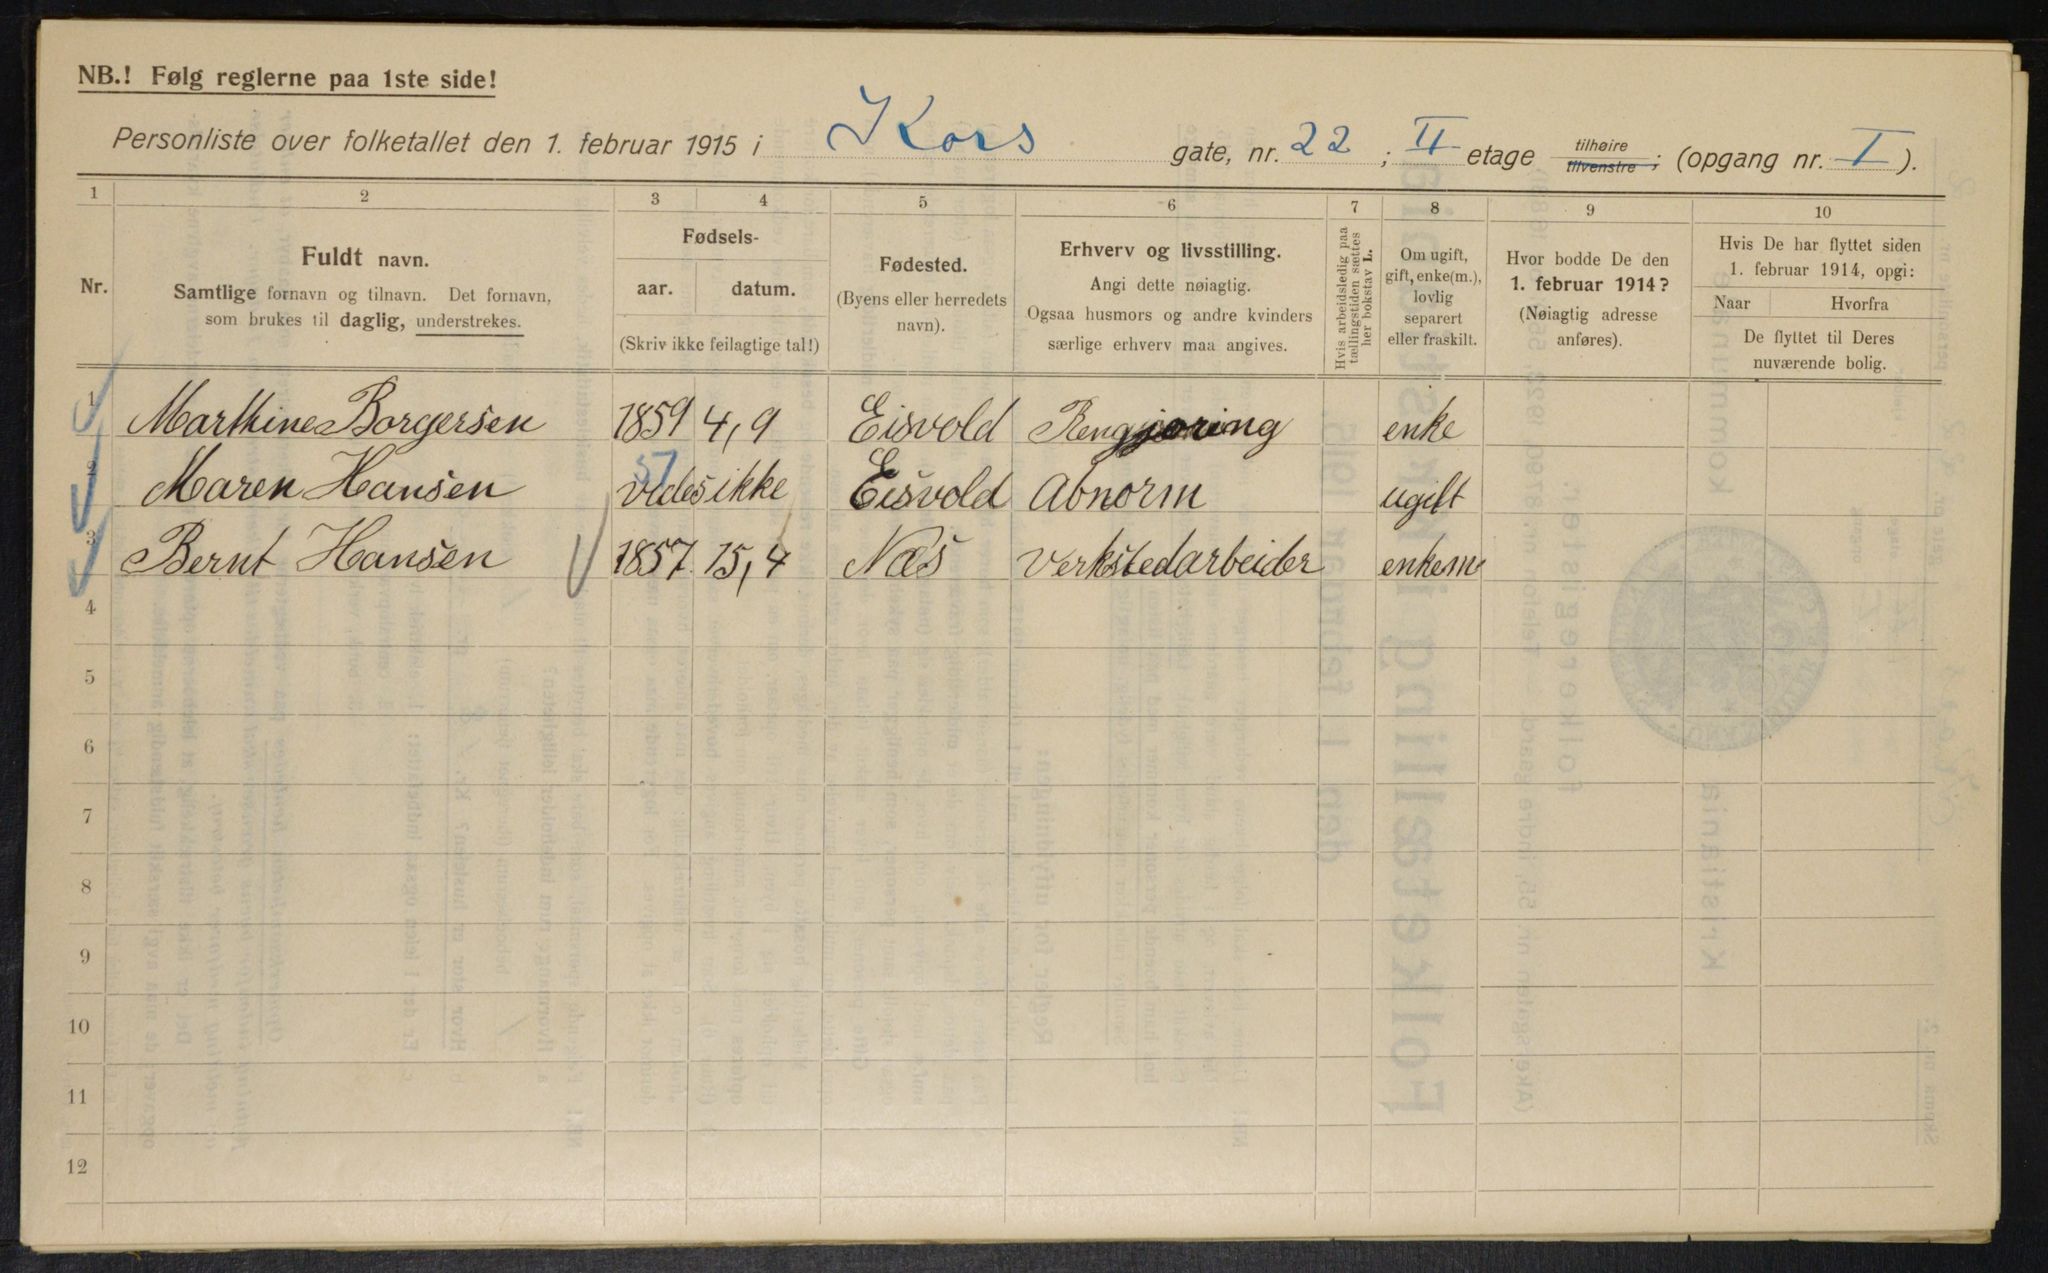 NB.! Følg reglerne paa 1ste side!
Personliste over folketallet den 1. februar 1915 i Kors gate, nr. 22 ; II etage tilhøire tilvenstre ; (opgang nr. I ).
1 2 3 4 5 6 7 8 9 10
Nr.
Fuldt navn.
Samtlige fornavn og tilnavn. Det fornavn,
som brukes til daglig, understrekes.
Fødsels-
aar. datum.
(Skriv ikke feilagtige tal!)
Fødested.
(Byens eller herredets
navn).
Erhverv og livsstilling.
Angi dette nøiagtig.
Ogsaa husmors og andre kvinders
særlige erhverv maa angives.
Hvis arbeidsledig paa
tællingstiden sættes
her bokstav L.
Om ugift,
gift, enke(m.),
lovlig
separert
eller fraskilt.
Hvor bodde De den
1. februar 1914?
(Nøiagtig adresse
anføres).
Hvis De har flyttet siden
1. februar 1914, opgi:
Naar Hvorfra
De flyttet til Deres
nuværende bolig.
1 Marthine Borgersen 1859 4,9 Eisvold Rengjøring enke
57
2 Maren Hansen vides ikke Eisvold Abnorm ugift
3 Bernt Hansen 1857 15,4 Næs Verkstedarbeider enkem
4
5
6
7
8
9
10
11
12